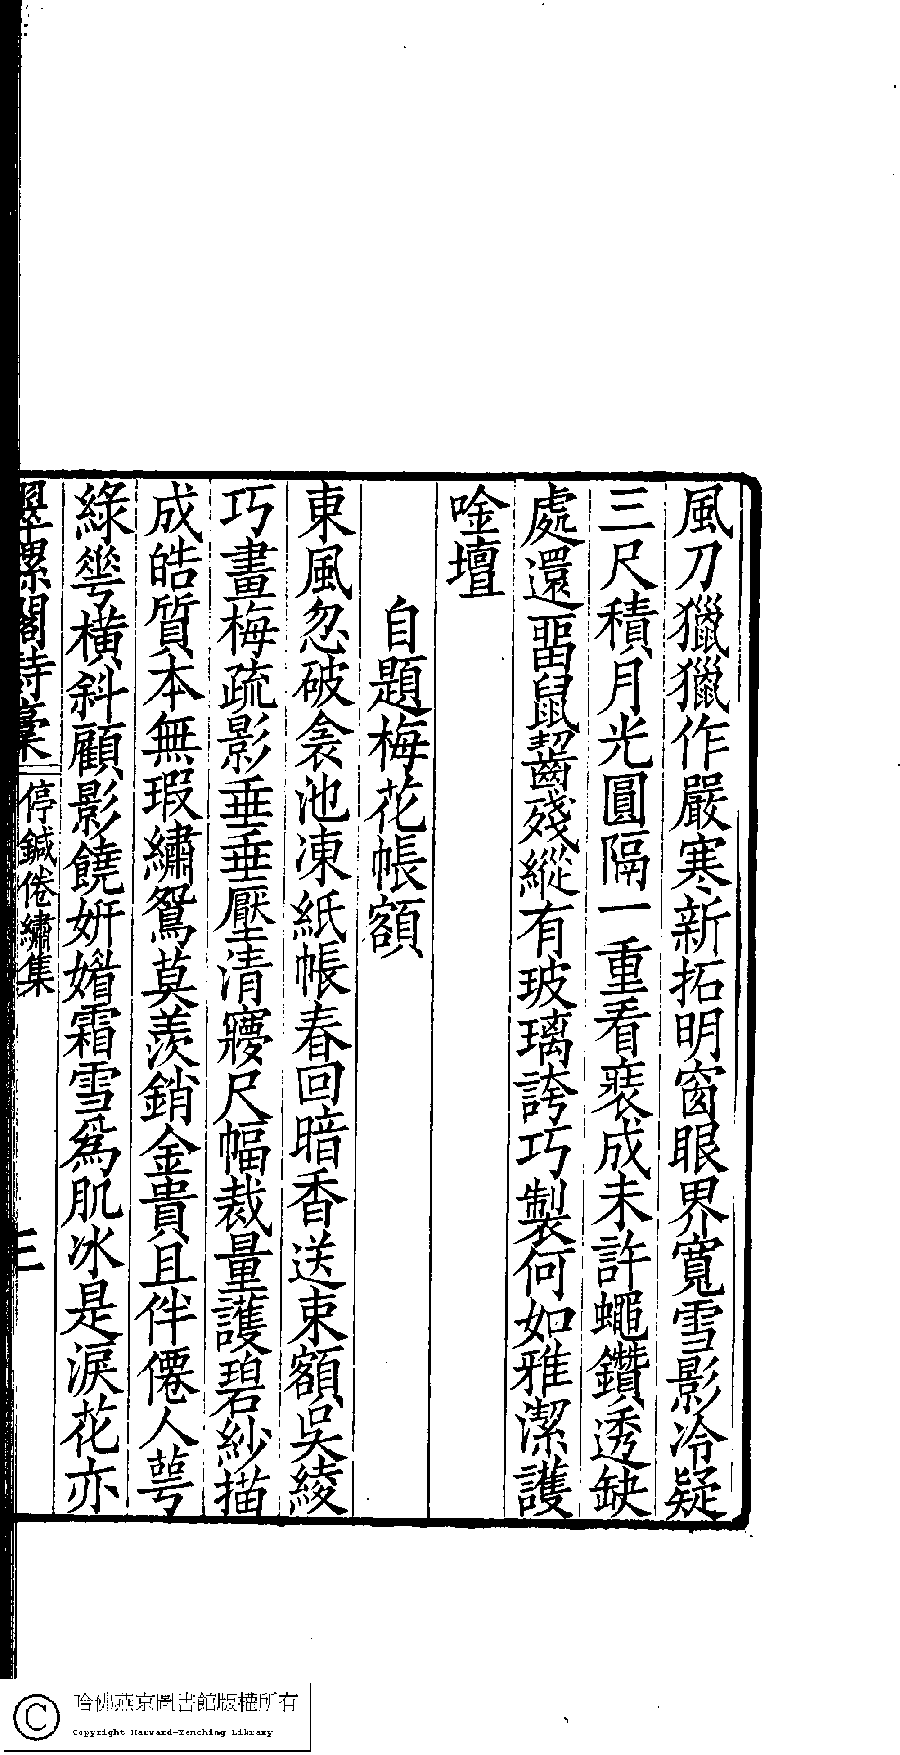 風刀獵獵作嚴寒新拓明窗眼界寬雪影冷疑
三尺積月光圓隔一重看裴成未許蠅鑽透缺
處還畱鼠齧殘縱有玻璃誇巧製何如雅潔護
唫壇
自題梅花帳額
東風忽破衾池凍紙帳春回暗香送束額吳綾
巧畫梅疏影垂垂壓清㝱尺幅裁量護碧紗描
成皓質本無瑕繡鴛莫羨銷金貴且伴僊人萼
綠華橫斜顧影饒妍媚霜雪爲肌冰是淚花亦
翠螺閣詩稾 停鍼倦繡集 三
哈佛燕京圖書館版權所有
Copyright Harvard-Yenching Library